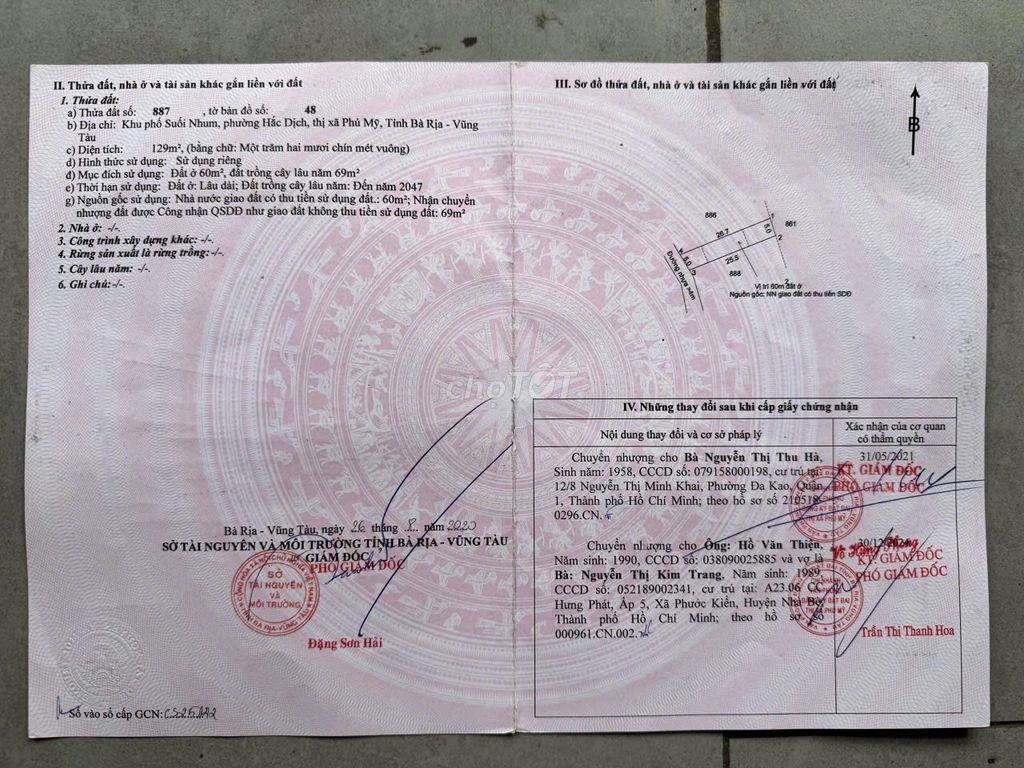 II. Thửa đất, nhà ở và tài sản khác gắn liền với đất
1. Thửa đất:
a) Thửa đất số: 887 , tờ bản đồ số: 48
b) Địa chỉ: Khu phố Suối Nhum, phường Hắc Dịch, thị xã Phú Mỹ, Tỉnh Bà Rịa - Vũng
Tàu
c) Diện tích: 129m², (bằng chữ: Một trăm hai mươi chín mét vuông)
d) Hình thức sử dụng: Sử dụng riêng
đ) Mục đích sử dụng: Đất ở 60m², đất trồng cây lâu năm 69m²
e) Thời hạn sử dụng: Đất ở: Lâu dài; Đất trồng cây lâu năm: Đến năm 2047
g) Nguồn gốc sử dụng: Nhà nước giao đất có thu tiền sử dụng đất.: 60m²; Nhận chuyển
nhượng đất được Công nhận QSDĐ như giao đất không thu tiền sử dụng đất: 69m²
2. Nhà ở: -/-.
3. Công trình xây dựng khác: -/-.
4. Rừng sản xuất là rừng trồng: -/-.
5. Cây lâu năm: -/-.
6. Ghi chú: -/-.
Bà Rịa - Vũng Tàu, ngày 26 tháng 8 năm 2020
SỞ TÀI NGUYÊN VÀ MÔI TRƯỜNG TỈNH BÀ RỊA - VŨNG TÀU
GIÁM ĐỐC
PHÓ GIÁM ĐỐC
SỞ
TÀI NGUYÊN
VÀ
MÔI TRƯỜNG
Đặng Sơn Hải
Số vào sổ cấp GCN:
III. Sơ đồ thửa đất, nhà ở và tài sản khác gắn liền với đất
B
886
861
1
26.7
5.0
2
5.0
25.5
888
2
Đường nhựa >4m
Vị trí 60m đất ở
Nguồn gốc: NN giao đất có thu tiền SDĐ
choTỐT
IV. Những thay đổi sau khi cấp giấy chứng nhận
Nội dung thay đổi và cơ sở pháp lý
Xác nhận của cơ quan
có thẩm quyền
Chuyển nhượng cho Bà Nguyễn Thị Thu Hà,
Sinh năm: 1958, CCCD số: 079158000198, cư trú tại:
12/8 Nguyễn Thị Minh Khai, Phường Đa Kao, Quận
1, Thành phố Hồ Chí Minh; theo hồ sơ số 210518-
0296.CN.
31/05/2021
KT. GIÁM ĐỐC
PHÓ GIÁM ĐỐC
Chuyển nhượng cho Ông: Hồ Văn Thiện,
Năm sinh: 1990, CCCD số: 038090025885 và vợ là
Bà: Nguyễn Thị Kim Trang, Năm sinh: 1989,
CCCD số: 052189002341, cư trú tại: A23.06 CC
Hưng Phát, Ấp 5, Xã Phước Kiển, Huyện Nhà Bè,
Thành phố Hồ Chí Minh; theo hồ sơ số
000961.CN.002.
KT. GIÁM ĐỐC
PHÓ GIÁM ĐỐC
Trần Thị Thanh Hoa